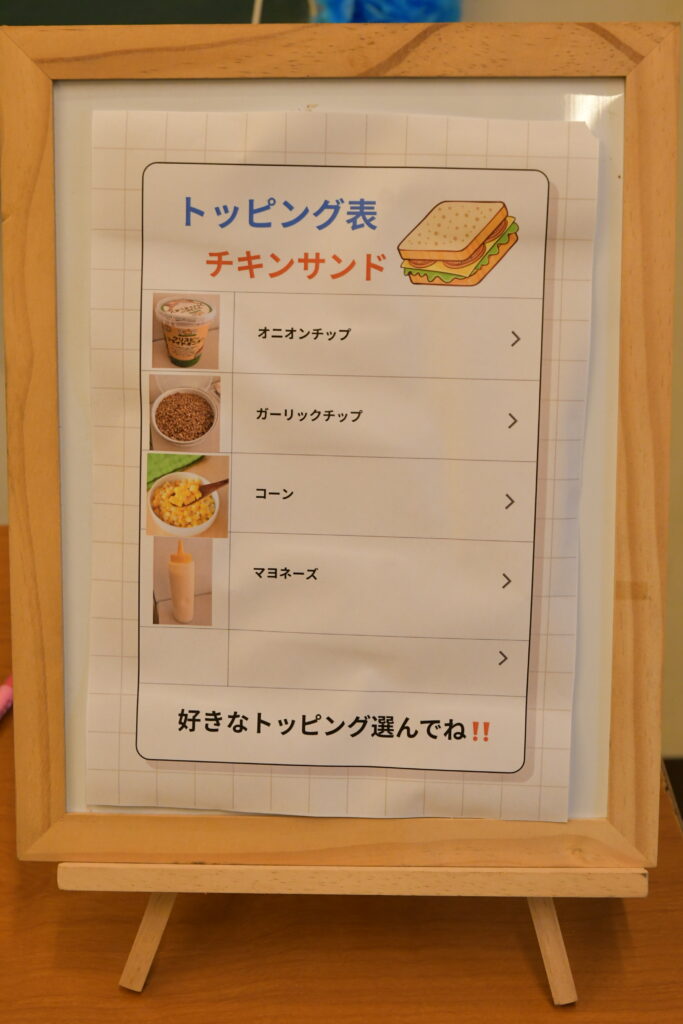 トッピング表
チキンサンド
オニオンチップ
ガーリックチップ
コーン
マヨネーズ
好きなトッピング選んでね‼️